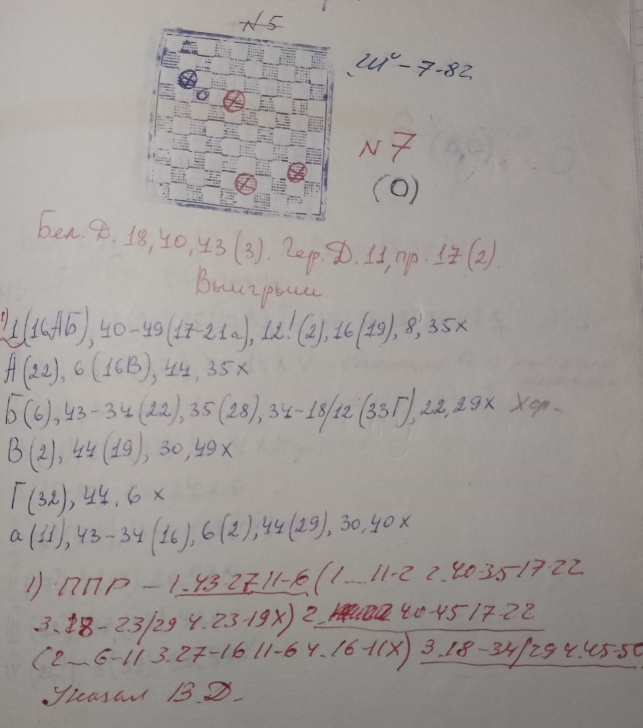 N5
N7
(0)
Бел. Д. 18, 40, 43 (3). Чер. Д. 11, пр. 17 (2).
Выигрыш
1) 1 (16АБ), 40-49 (17-21а), 12! (2), 16 (19), 8, 35х
А (22), 6 (16В), 44, 35х
Б (6), 43-34 (22), 35 (28), 34-18/12 (33Г), 22, 29х Хор.
В (2), 44 (19), 30, 49х
Г (32), 44, 6 х
а (11), 43-34 (16), 6 (2), 44 (29), 30, 40х
1) ППР - 1. 43-27 11-6 (1...11-2 2. 40-35 17-22
3. 18-23/29 4. 23-19х) 2. 40-45 17-22
(2...6-11 3. 27-16 11-6 4. 16-11х) 3. 18-34/29 4. 45-50
Указал В.Д.